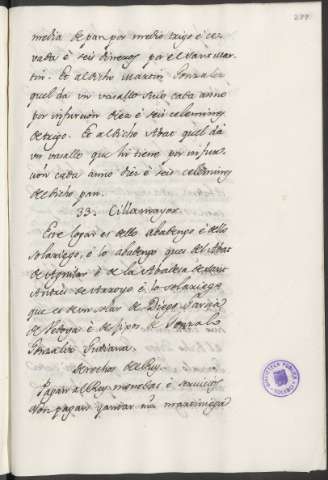 media de pan por medio trigo è ce-
vada è seis dineros por el Sant Mar-
tin. Et al dicho Martin Gonzalez
quel dà un vasallo suio cada anno
por infurción diez è seis celemines
de trigo. Et al dicho Abat quel dà
un vasallo que hi tiene por infur-
ción cada anno diez è seis celemines
del dicho pan.
33. Cillamayor
Este logar es dello abadengo è dello
solariego, è lo abadengo que es del Abat
de Aguilar è de la Abadesa de Sant
Andres de Arroyo è lo solariego
que es de un solar de Diego Garcia
de è de fijos de Gonzalo
Gonzalez
Derechos del Rey
Pagan al Rey monedas è servicios
Non pagan yantar nin martiniega
BIBLIOTECA PUBLICA
TOLEDO